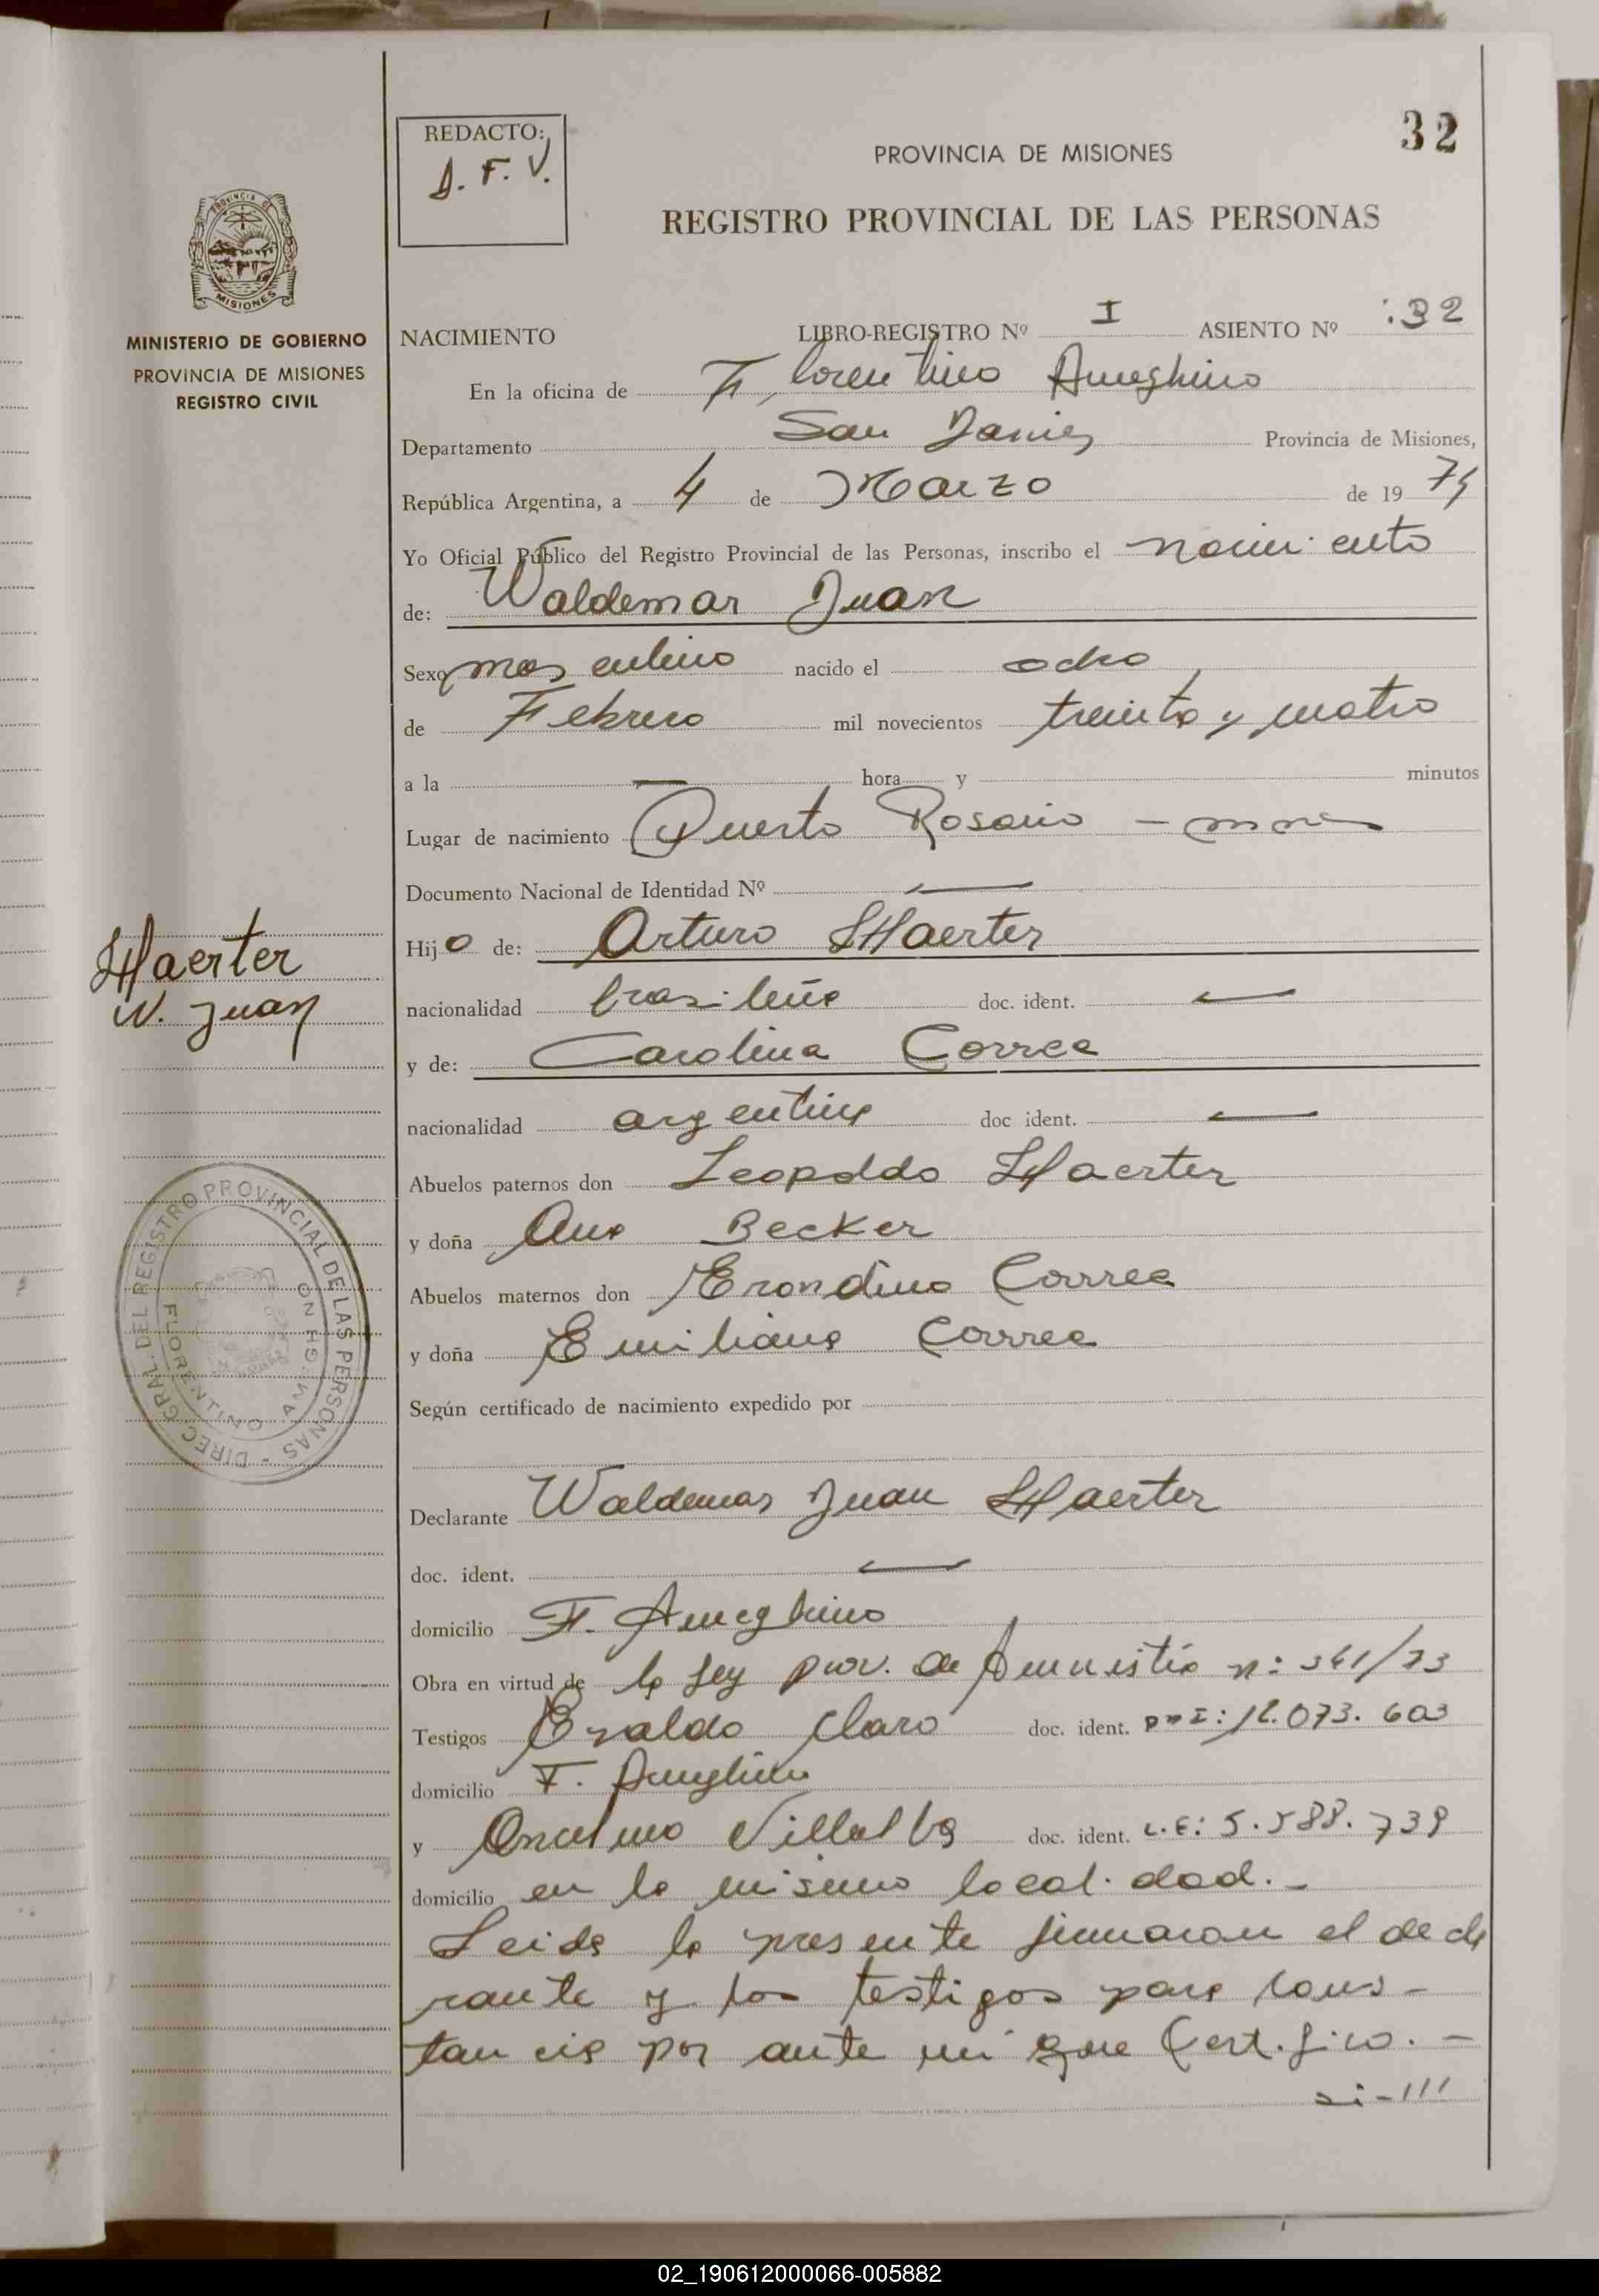 32
REDACTO:
D. F. V.
PROVINCIA DE MISIONES
REGISTRO PROVINCIAL DE LAS PERSONAS
PROVINCIA DE
MISIONES
MINISTERIO DE GOBIERNO
PROVINCIA DE MISIONES
REGISTRO CIVIL
NACIMIENTO LIBRO-REGISTRO Nº I ASIENTO Nº :32
En la oficina de Florentino Ameghino
Departamento San Javier Provincia de Misiones,
República Argentina, a 4 de Marzo de 19 74
Yo Oficial Público del Registro Provincial de las Personas, inscribo el nacimiento
de: Waldemar Juan
Sexo masculino nacido el ocho
de Febrero mil novecientos treinta y cuatro
a la — hora y minutos
Lugar de nacimiento Puerto Rosario -
Documento Nacional de Identidad Nº —
Hijo de: Arturo Haerter
nacionalidad brasileña doc. ident. —
y de: Carolina Correa
nacionalidad argentina doc ident. —
Abuelos paternos don Leopoldo Haerter
y doña Ana Becker
Abuelos maternos don Erondino Correa
y doña Emiliana Correa
Según certificado de nacimiento expedido por
Declarante Waldemar Juan Haerter
doc. ident. —
domicilio F. Ameghino
Obra en virtud de la Ley prov. de Amnistía n: 341/73
Testigos Evaldo Claro doc. ident. DNI: 12.073.603
domicilio F. Ameghino
y Anselmo Villalba doc. ident. L.E: 5.588.739
domicilio en la misma localidad.-
Leida la presente firmaron el decla
rante y los testigos para cons-
tancia por ante mi que Certifico. -
si-///
Haerter
W. Juan
DIREC. GRAL. DEL REGISTRO PROVINCIAL DE LAS PERSONAS -
FLORENTINO AMEGHINO
02_190612000066-005882